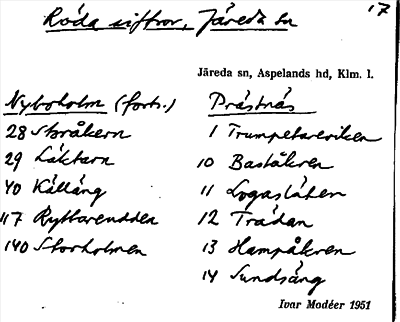 17
Röda siffror, Järeda sn
Järeda sn, Aspelands hd, Klm. l.
Nyboholm (forts.)
28 Storåkern
29 Läktarn
40 Källäng
117 Ryttareudden
140 Storholmen
Prästnäs
1 Trumpetareviken
10 Baståkren
11 Logaslätten
12 Trädan
13 Hampåkren
14 Sundsäng
Ivar Modéer 1951